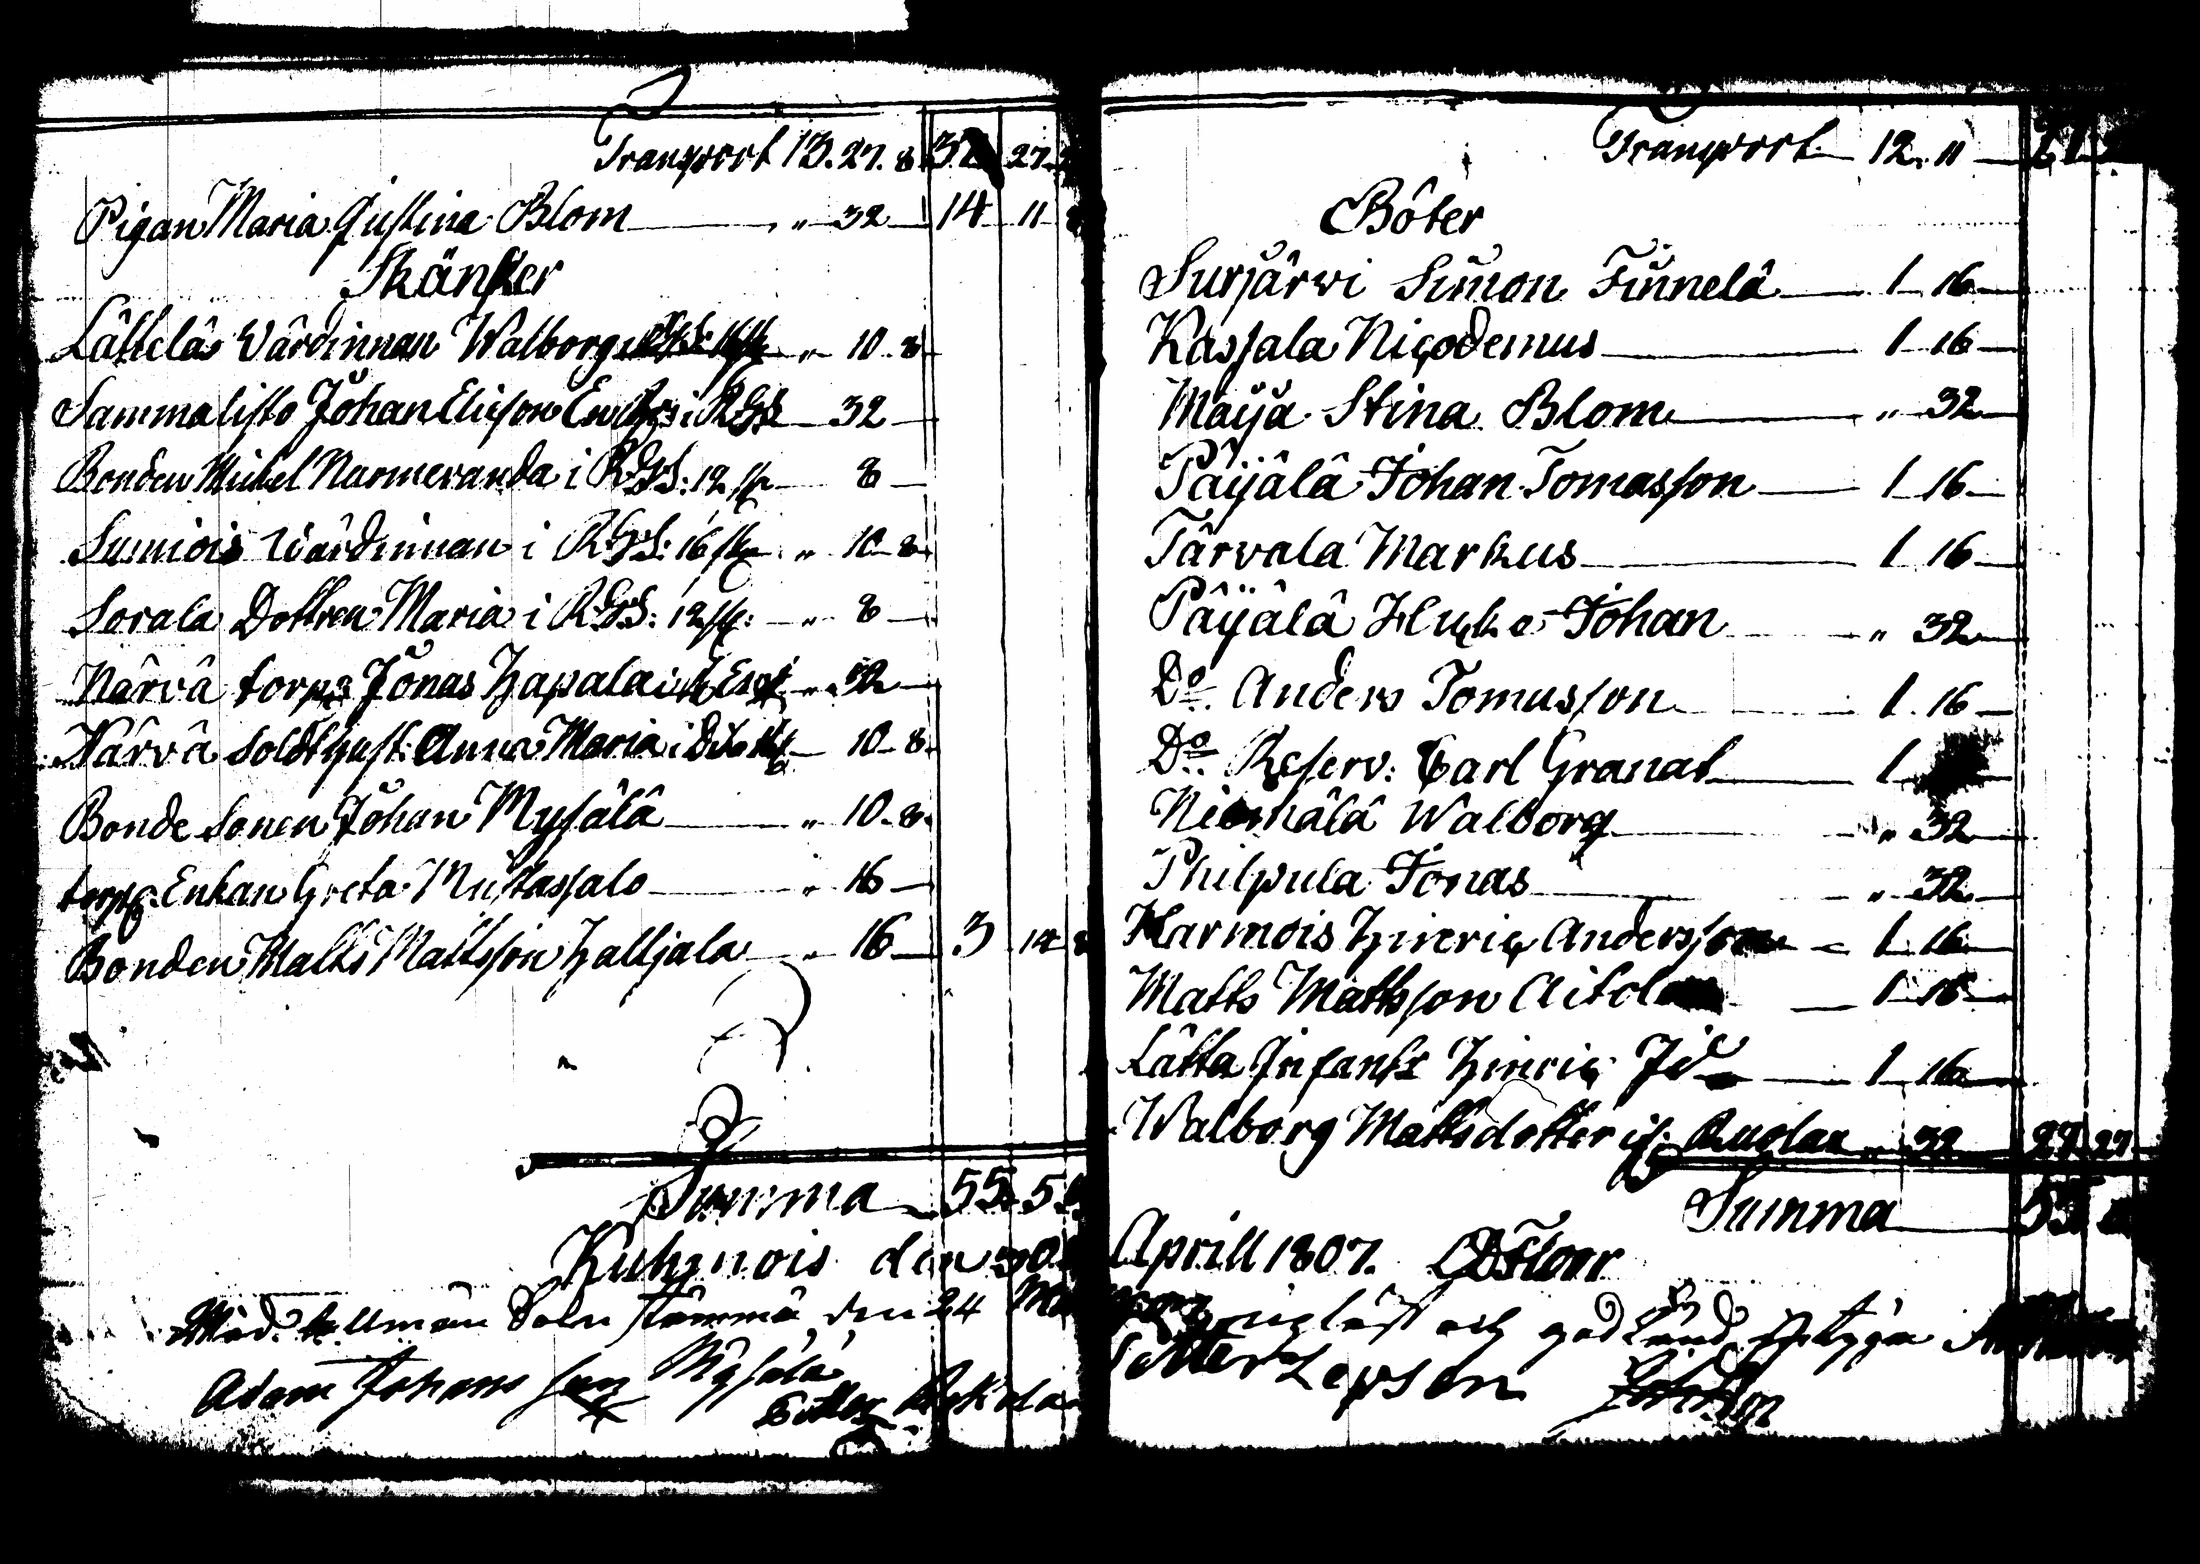 Transport 13. 27. 8 37 27.
Pigan Maria Justina Blom " 32 14 11
Skänker
Lättelä Värdinnan Walborg " 10. 8
Sammalisto Johan Ericson i RGS 32
Bonden Michel Narmeranda i RGS: 12 sk 8
Sumiois Wärdinnan i RGS: 16 sk " 10. 8
Sorala Dottren Maria i RGS: 12 sk: " 8
Närvä torps Jonas Hapala " 32
Närvä Soldt hust: Anna Maria i Dito 10. 8
Bonde Sonen Johan Mysälä " 10. 8.
torps Enkan Greta Mustassalo " 16
Bonden Matts Mattsson Halljala " 16 3 14
Summa 55. 5
Kuhmois den 30
Wid allmän Sokn stämma, den 24
Adam Johans son Mysälä
Transport 12. 11
Böter
Surjärwi Simon Finnelä 1 16
Kassala Nicodemus 1 16
Maija Stina Blom " 32
Päijälä Johan Tomasson 1 16
Tärvala Markus 1 16
Päijälä Johan " 32
Do. Anders Tomasson 1. 16
Do. Reserv: Carl Granat 1
Niemälä Walborg " 32
Philpula Jonas " 32
Harmois Hinric Andersson 1 16
Matts Mattsson 1 16
Lätta Hinric 1 16
Walborg Mattsdotter " 32 27 27
Summa 55
Aprill 1807.
och god känd